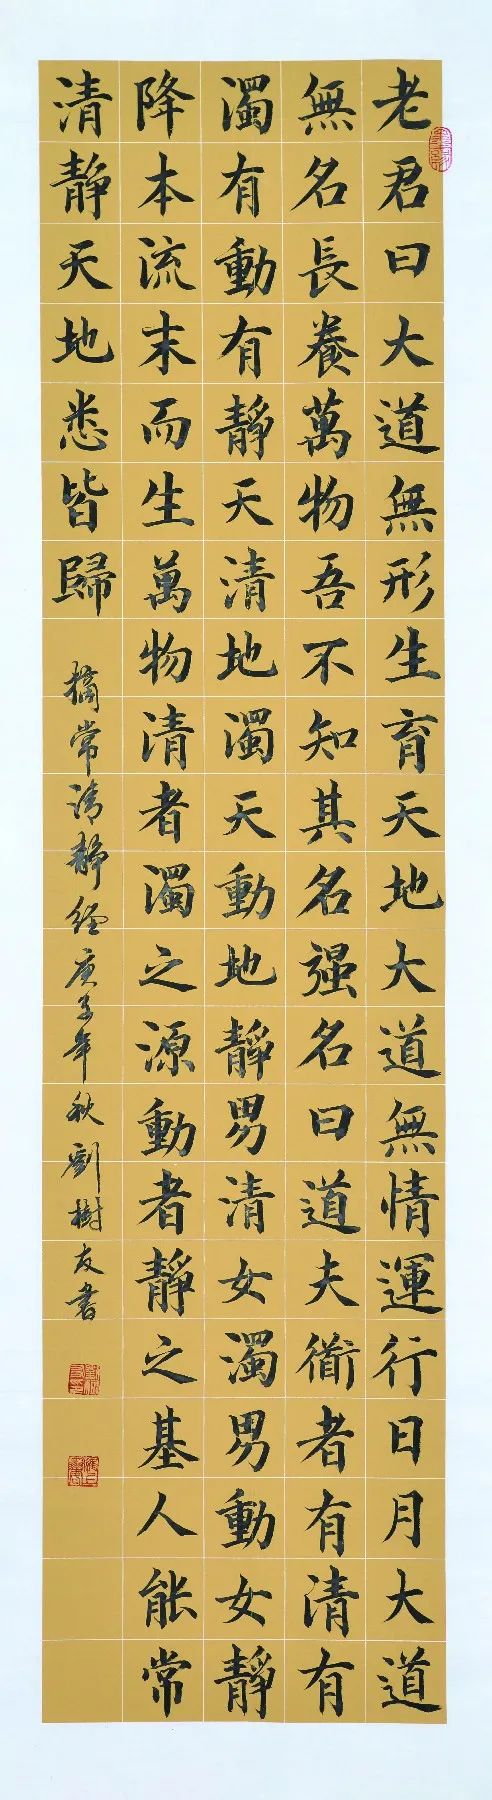 老君曰大道無形生育天地大道無情運行日月大道
無名長養萬物吾不知其名强名曰道夫衜者有清有
濁有動有靜天清地濁天動地靜男清女濁男動女靜
降本流末而生萬物清者濁之源動者靜之基人能常
清靜天地悉皆歸
摘常清靜經庚子年秋劉樹友書